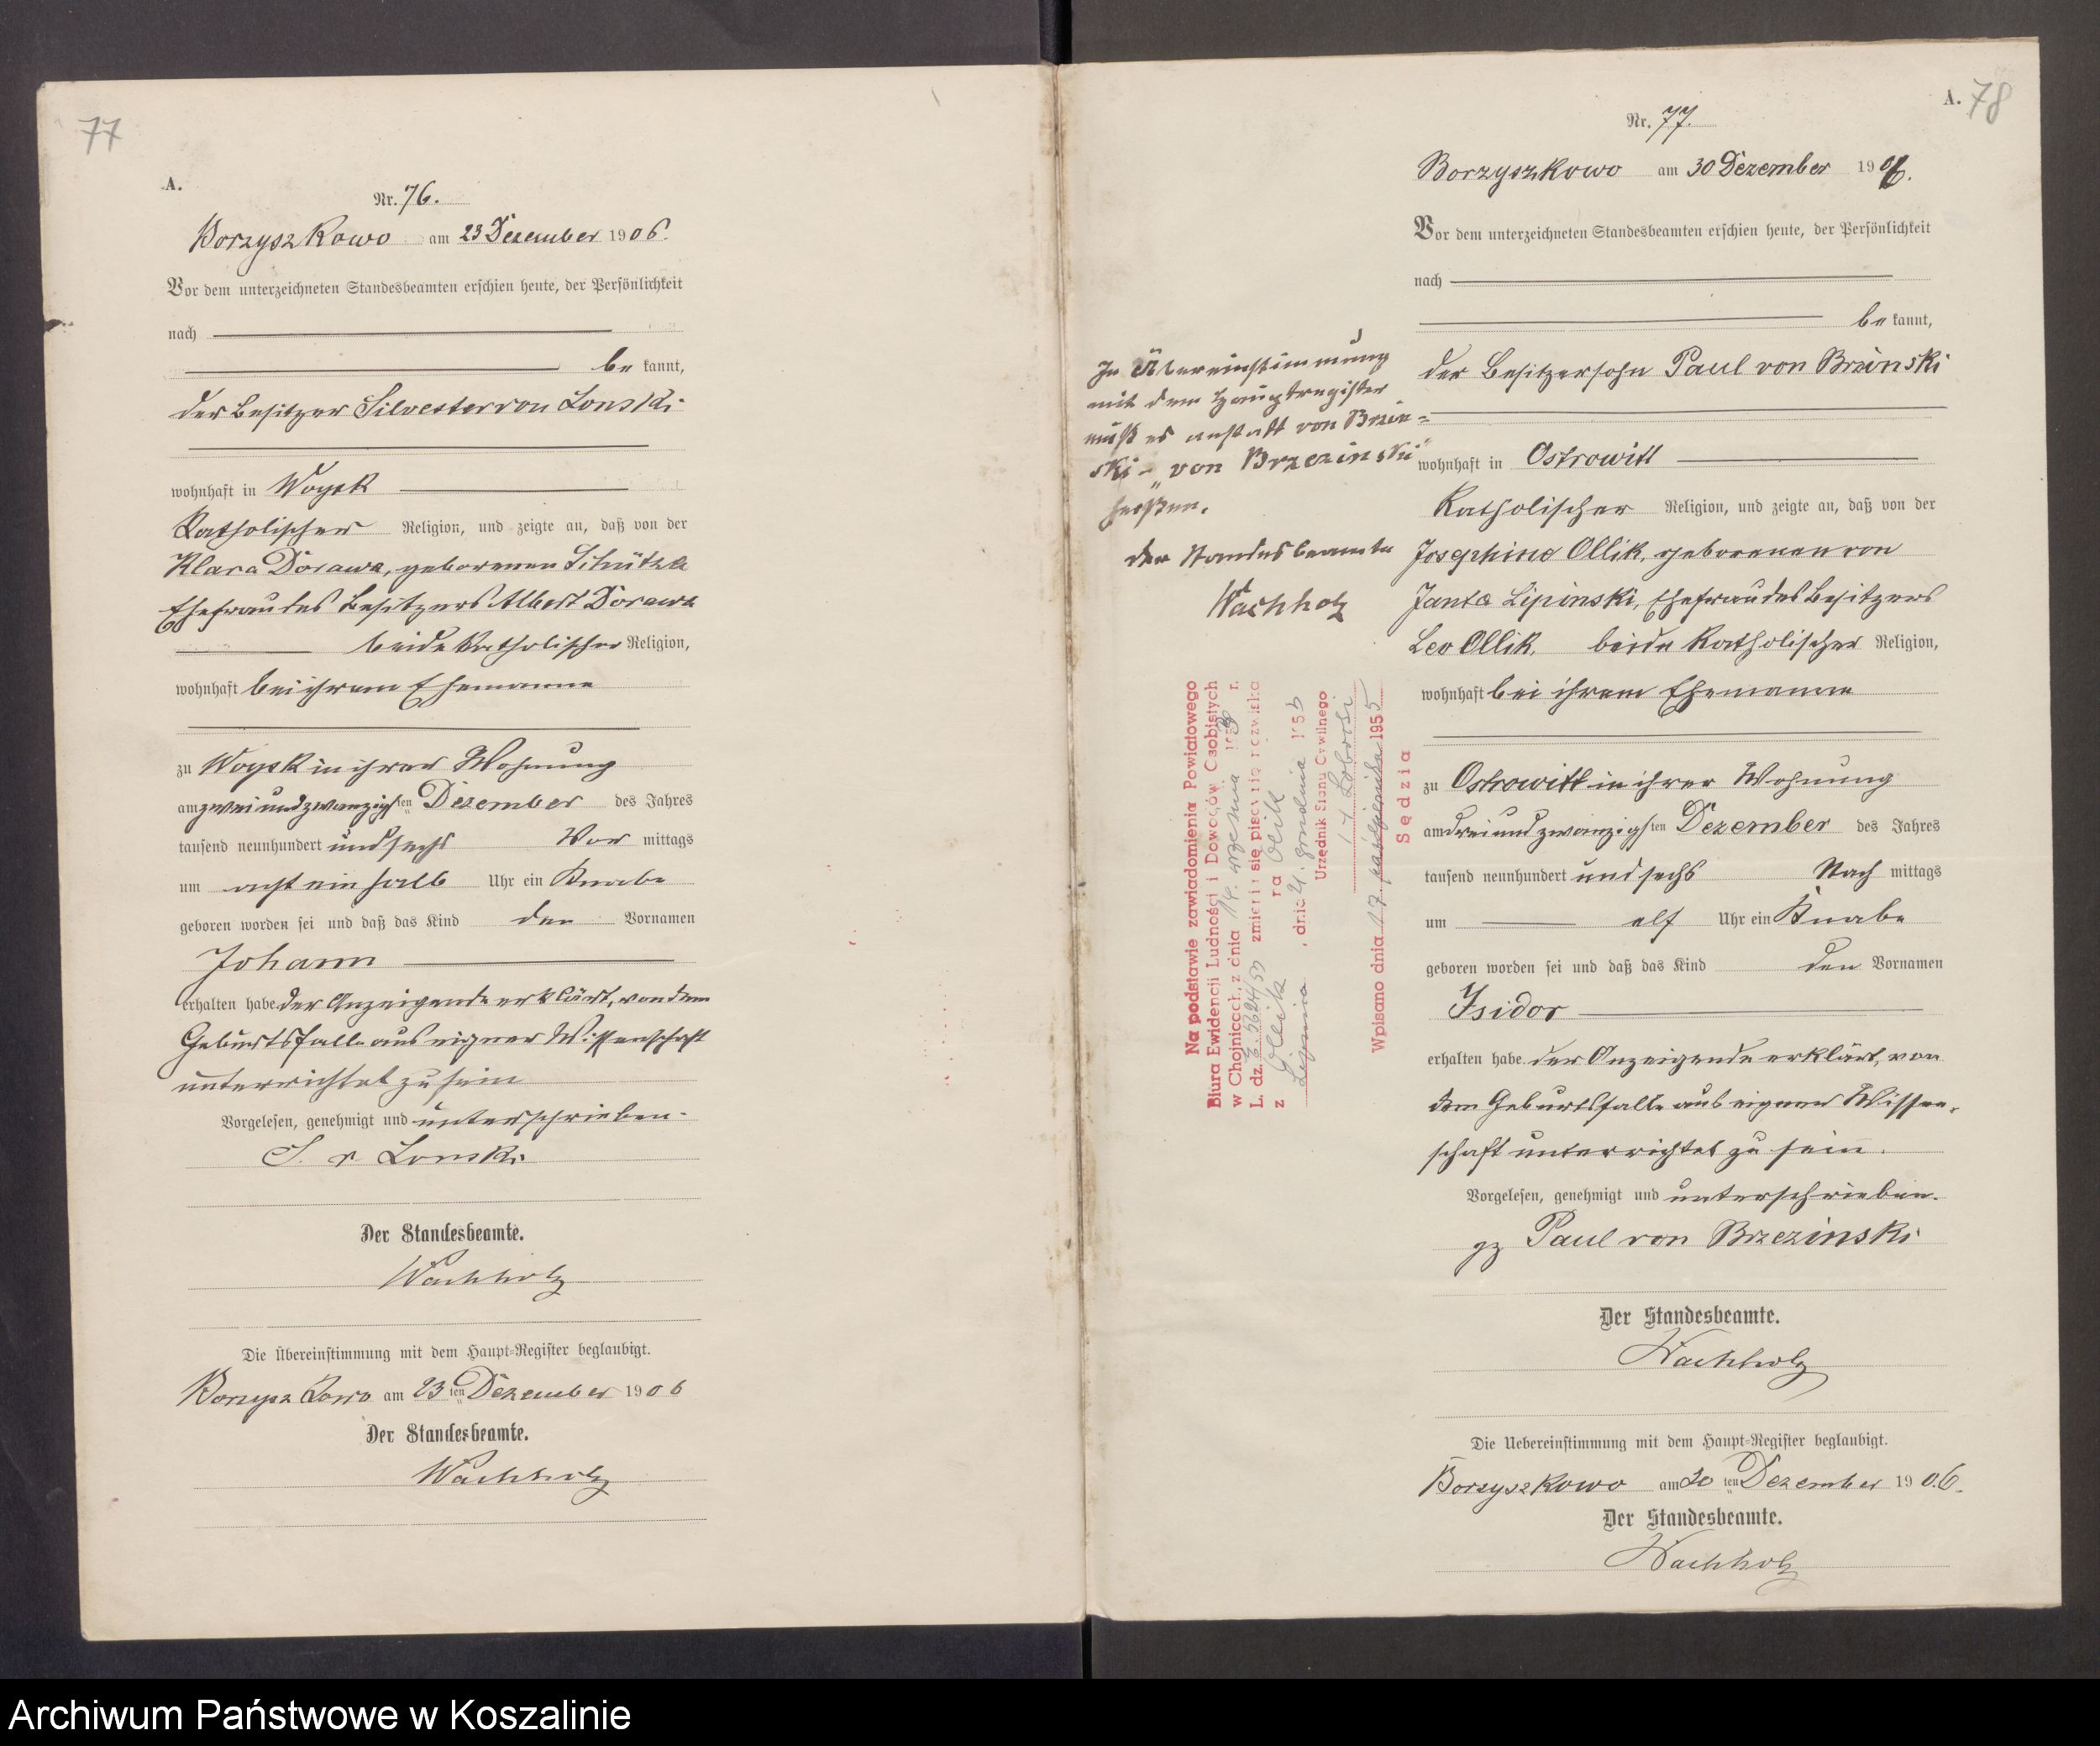 77
A.
Nr. 76.
Borzyszkowo am 23 Dezember 1906.
Vor dem unterzeichneten Standesbeamten erschien heute, der Persönlichkeit
nach
be kannt,
der Besitzer Silvester von Lonski
wohnhaft in Woysk
Katholischer Religion, und zeigte an, daß von der
Klara Dorawa, geborenen Schütza
Ehefrau des Besitzers Albert Dorawa
beide Katholischer Religion,
wohnhaft bei ihrem Ehemanne
zu Woysk in ihrer Wohnung
am zwei und zwanzigsten Dezember des Jahres
tausend neunhundert und sechs Vor mittags
um acht ein halb Uhr ein Knabe
geboren worden sei und daß das Kind den Vornamen
Johann
erhalten habe. der Anzeigende erklärt, von dem
Geburtsfalle aus eigner Wissenschaft
unterrichtet zu sein
Vorgelesen, genehmigt und unterschrieben.
S. v Lonski
Der Standesbeamte.
Wachholz
Die Übereinstimmung mit dem Haupt-Register beglaubigt.
Borzyszkowo am 23 ten Dezember 1906
Der Standesbeamte.
Wachholz
A. 78
Nr. 77.
Borzyszkowo am 30 Dezember 1906.
Vor dem unterzeichneten Standesbeamten erschien heute, der Persönlichkeit
nach
be kannt,
der Besitzersohn Paul von Brzinski
wohnhaft in Ostrowitt
Katholischer Religion, und zeigte an, daß von der
Josephine Ollik, geborenen von
Janta Lipinski, Ehefrau des Besitzers
Leo Ollik, beide Katholischer Religion,
wohnhaft bei ihrem Ehemanne
zu Ostrowitt in ihrer Wohnung
am drei und zwanzigsten Dezember des Jahres
tausend neunhundert und sechs Nach mittags
um elf Uhr ein Knabe
geboren worden sei und daß das Kind den Vornamen
Isidor
erhalten habe. der Anzeigende erklärt, von
dem Geburtsfalle aus eigner Wissen-
schaft unterrichtet zu sein.
Vorgelesen, genehmigt und unterschrieben.
gz Paul von Brzezinski
Der Standesbeamte.
Wachholz
Die Uebereinstimmung mit dem Haupt-Register beglaubigt.
Borzyszkowo am 30 ten Dezember 1906.
Der Standesbeamte.
Wachholz
In Übereinstimmung
mit dem Hauptregister
muß es anstatt von Brzin=
ski - "von Brzezinski"
heißen.
Der Standesbeamte
Wachholz
Na podstawie zawiadomienia Powiatowego
Biura Ewidencji Ludności i Dowodów Osobistych
w Chojnicach, z dnia 14. września r.
L. dz. zmienił się pisownia nazwiska
z Ollik na Olik
, dnia 21. grudnia 1955
Urzędnik Stanu Cywilnego
Wpisano dnia 17 października 1955
Sędzia
Archiwum Państwowe w Koszalinie